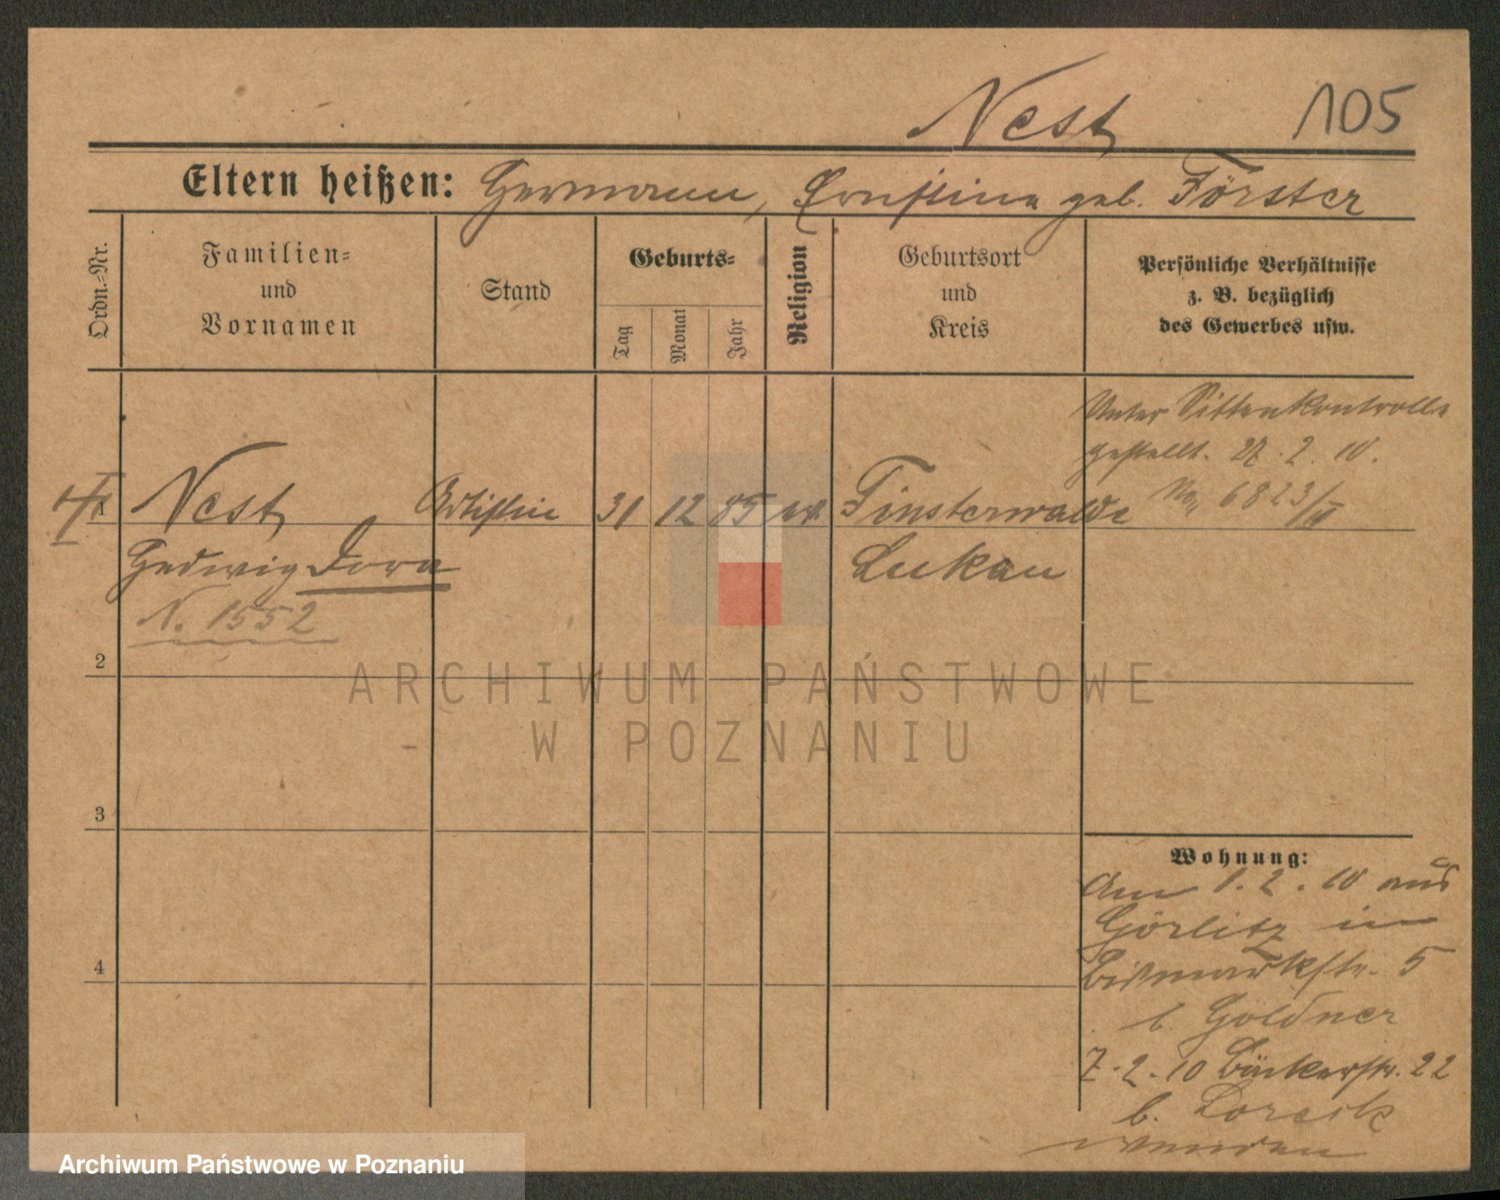 Nest 105
Eltern heißen: Hermann, Ernstine geb. Förster
Ordn.-Nr.
Familien=
und
Vornamen
Stand
Geburts=
Tag
Monat
Jahr
Religion
Geburtsort
und
Kreis
Persönliche Verhältnisse
z. B. bezüglich
des Gewerbes usw.
Unter Sittenkontrolle
gestellt. 27. 2. 10.
No 6823/II
1 Nest Artistin 31 12 85 ev. Finsterwalde
Hedwig Dora Lukau
N. 1552
2
3
4
Wohnung:
Am 1. 2. 10 aus
Görlitz in
Bismarkstr. 5
b. Göldner
7. 2. 10 Bäckerstr. 22
b.
wenden
ARCHIWUM PAŃSTWOWE
W POZNANIU
Archiwum Państwowe w Poznaniu